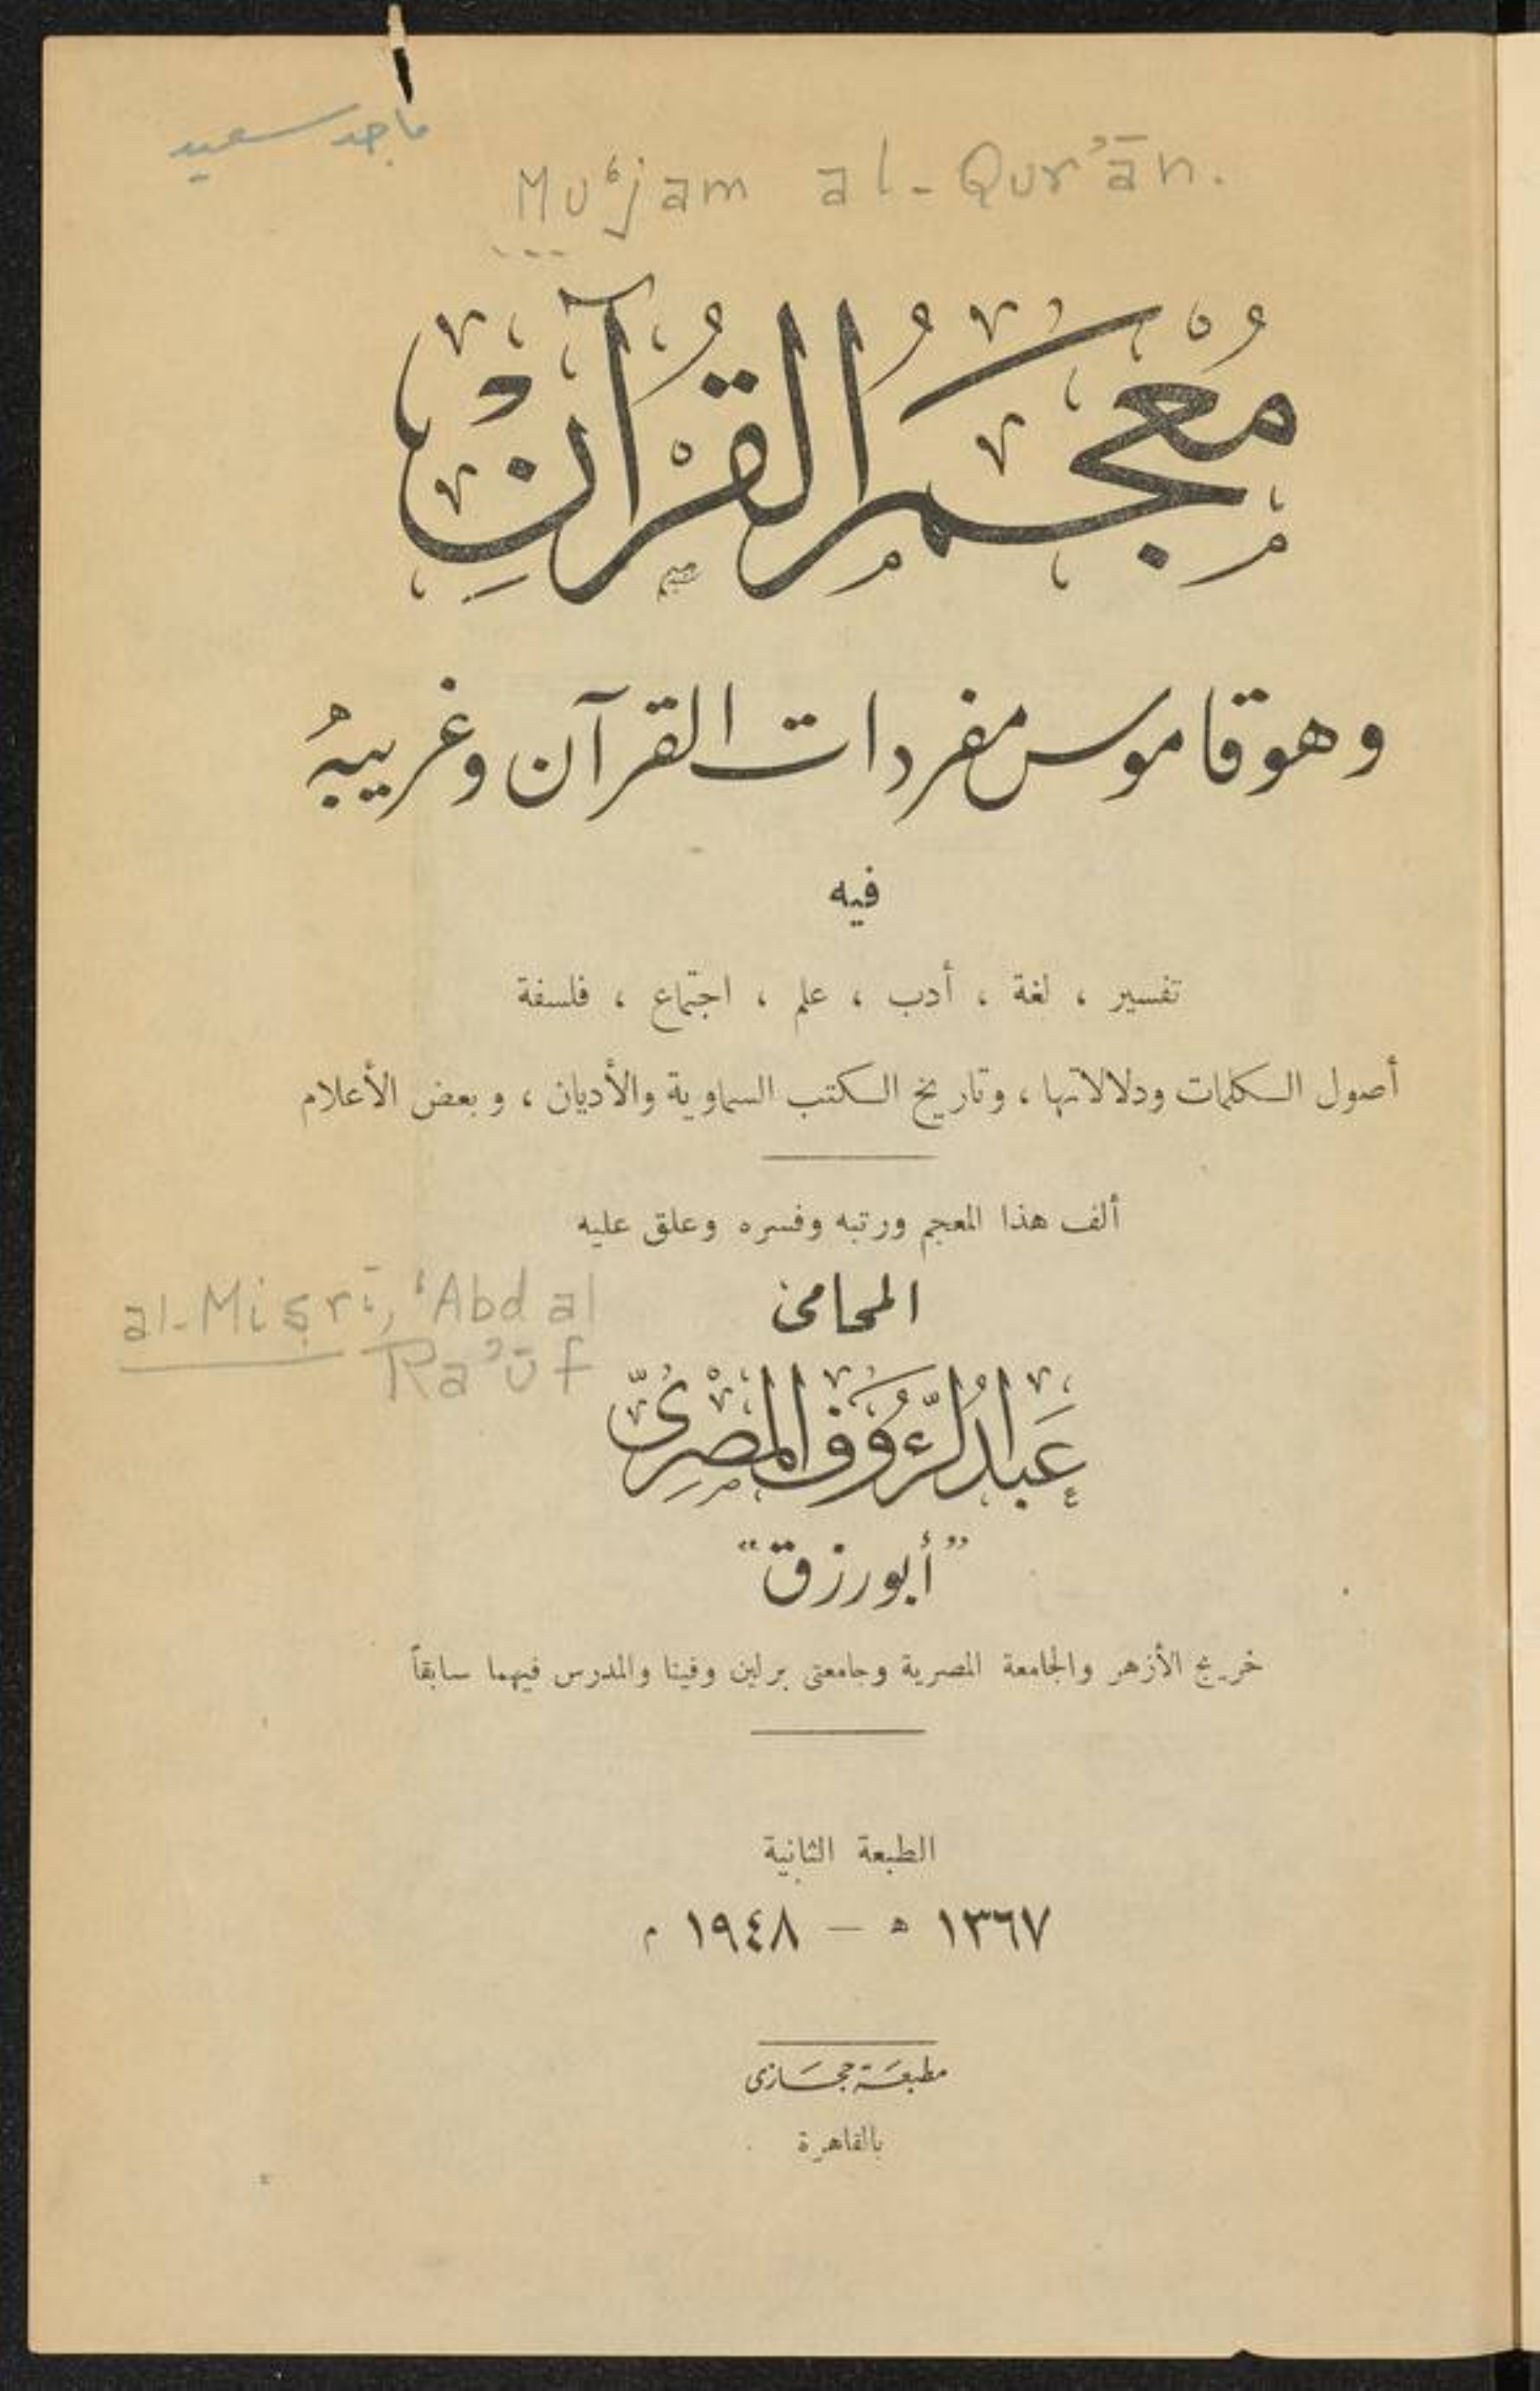 ماجد سعيد
Mu'jam al-Qur'ān.
مُعْجَمُ القُرْآنِ
وهو قاموس مفردات القرآن وغريبهُ
فيه
تفسير ، لغة ، أدب ، علم ، اجتماع ، فلسفة
أصول الكلمات ودلالاتها ، وتاريخ الكتب السماوية والأديان ، وبعض الأعلام
ألف هذا المعجم ورتبه وفسره وعلق عليه
المحامى
al-Miṣrī, 'Abd al
Ra'ūf
عَبدُ الرَّءُوف المصْرِىّ
"أبو رزق"
خريج الأزهر والجامعة المصرية وجامعتى برلين وفينا والمدرس فيهما سابقاً
الطبعة الثانية
١٣٦٧ ه — ١٩٤٨ م
مطبعَة حجَازى
بالقاهرة